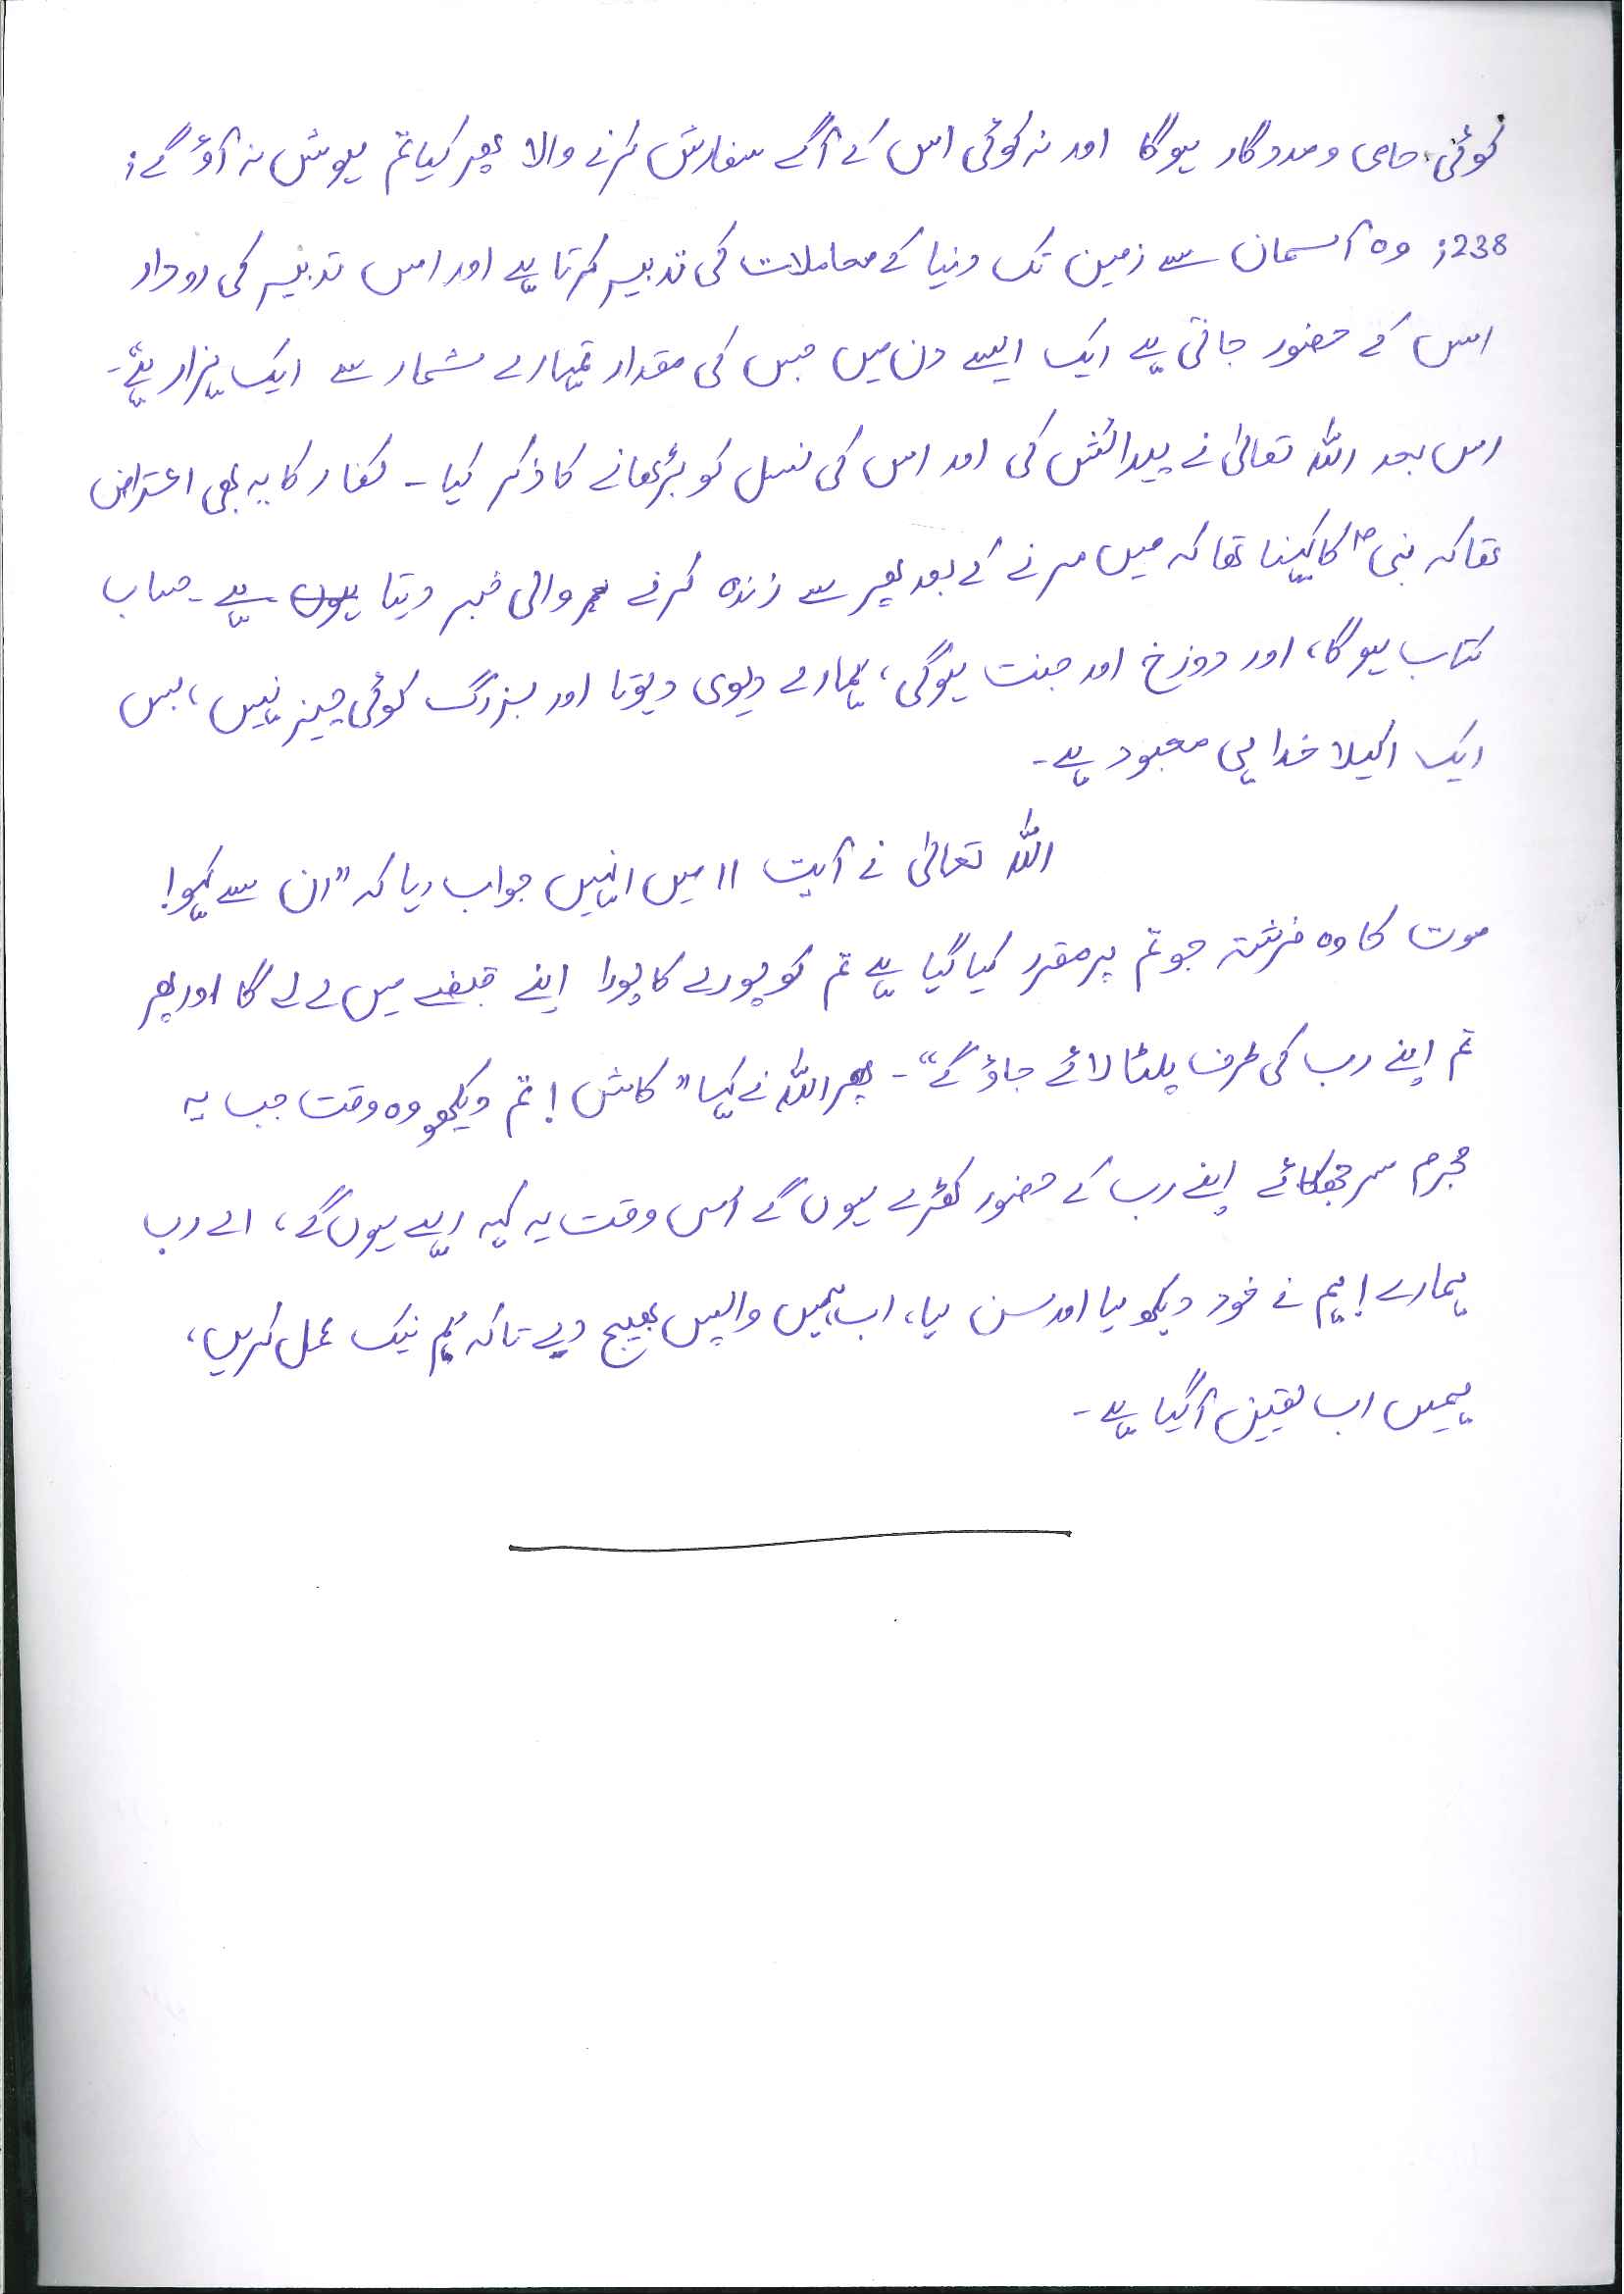 کوئی حامی و مددگار ہوگا اور نہ کوئی اس کے آگے سفارش کرنے والا پھر کیا تم ہوش نہ آؤ گے؛
238؛ وہ آسمان سے زمین تک دنیا کے معاملات کی تدبیر کرتا ہے اور اس تدبیر کی روداد
اس کے حضور جاتی ہے ایک ایسے دن میں جس کی مقدار تمہارے شمار سے ایک ہزار ہے۔
اس بعد اللہ تعالیٰ نے پیدائش کی اور اس کی نسل کو بڑھانے کا ذکر کیا۔ کفار کا یہ بھی اعتراض
تھا کہ نبیؐ کا کہنا تھا کہ میں مرنے کے بعد پھر سے زندہ کرنے والی خبر دیتا ہے۔ حساب
کتاب ہوگا، اور دوزخ اور جنت ہوگی، ہمارے دیوی دیوتا اور بزرگ کوئی چیز نہیں، بس
ایک اکیلا خدا ہی معبود ہے۔
اللہ تعالیٰ نے آیت 11 میں انہیں جواب دیا کہ "ان سے کہو!
موت کا وہ فرشتہ جو تم پر مقرر کیا گیا ہے تم کو پورے کا پورا اپنے قبضے میں لے لے گا اور پھر
تم اپنے رب کی طرف پلٹا لائے جاؤ گے"۔ پھر اللہ نے کہا "کاش! تم دیکھو وہ وقت جب یہ
مجرم سر جھکائے اپنے رب کے حضور کھڑے ہوں گے اُس وقت یہ کہہ رہے ہوں گے، اے رب
ہمارے! ہم نے خود دیکھ لیا اور سن لیا، اب ہمیں واپس بھیج دے تاکہ ہم نیک عمل کریں،
ہمیں اب یقین آگیا ہے۔